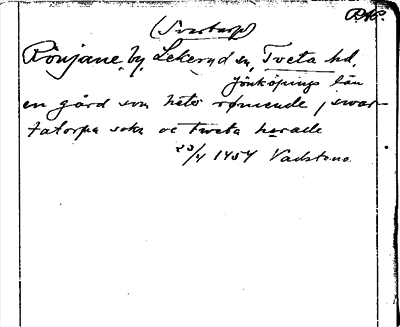 RAp.
(Svartarp)
Rönjane, by, Lekeryd sn, Tveta hd,
Jönköpings län
en gård som heter rømende j swar-
tatorpa sokn oc tweta hærade
23/4 1454 Vadstena